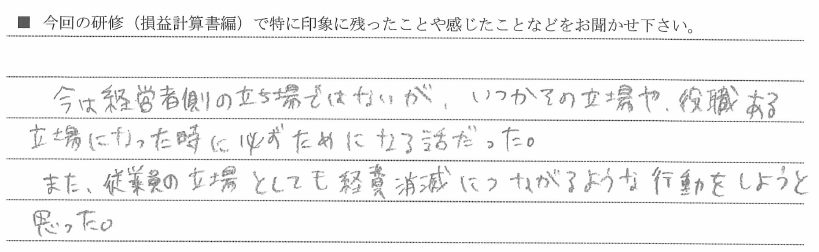 ■ 今回の研修（損益計算書編）で特に印象に残ったことや感じたことなどをお聞かせ下さい。
今は経営者側の立ち場ではないが、いつかその立場や、役職ある
立場になった時に必ずためになる話だった。
また、従業員の立場としても経費消減につながるような行動をしようと
思った。